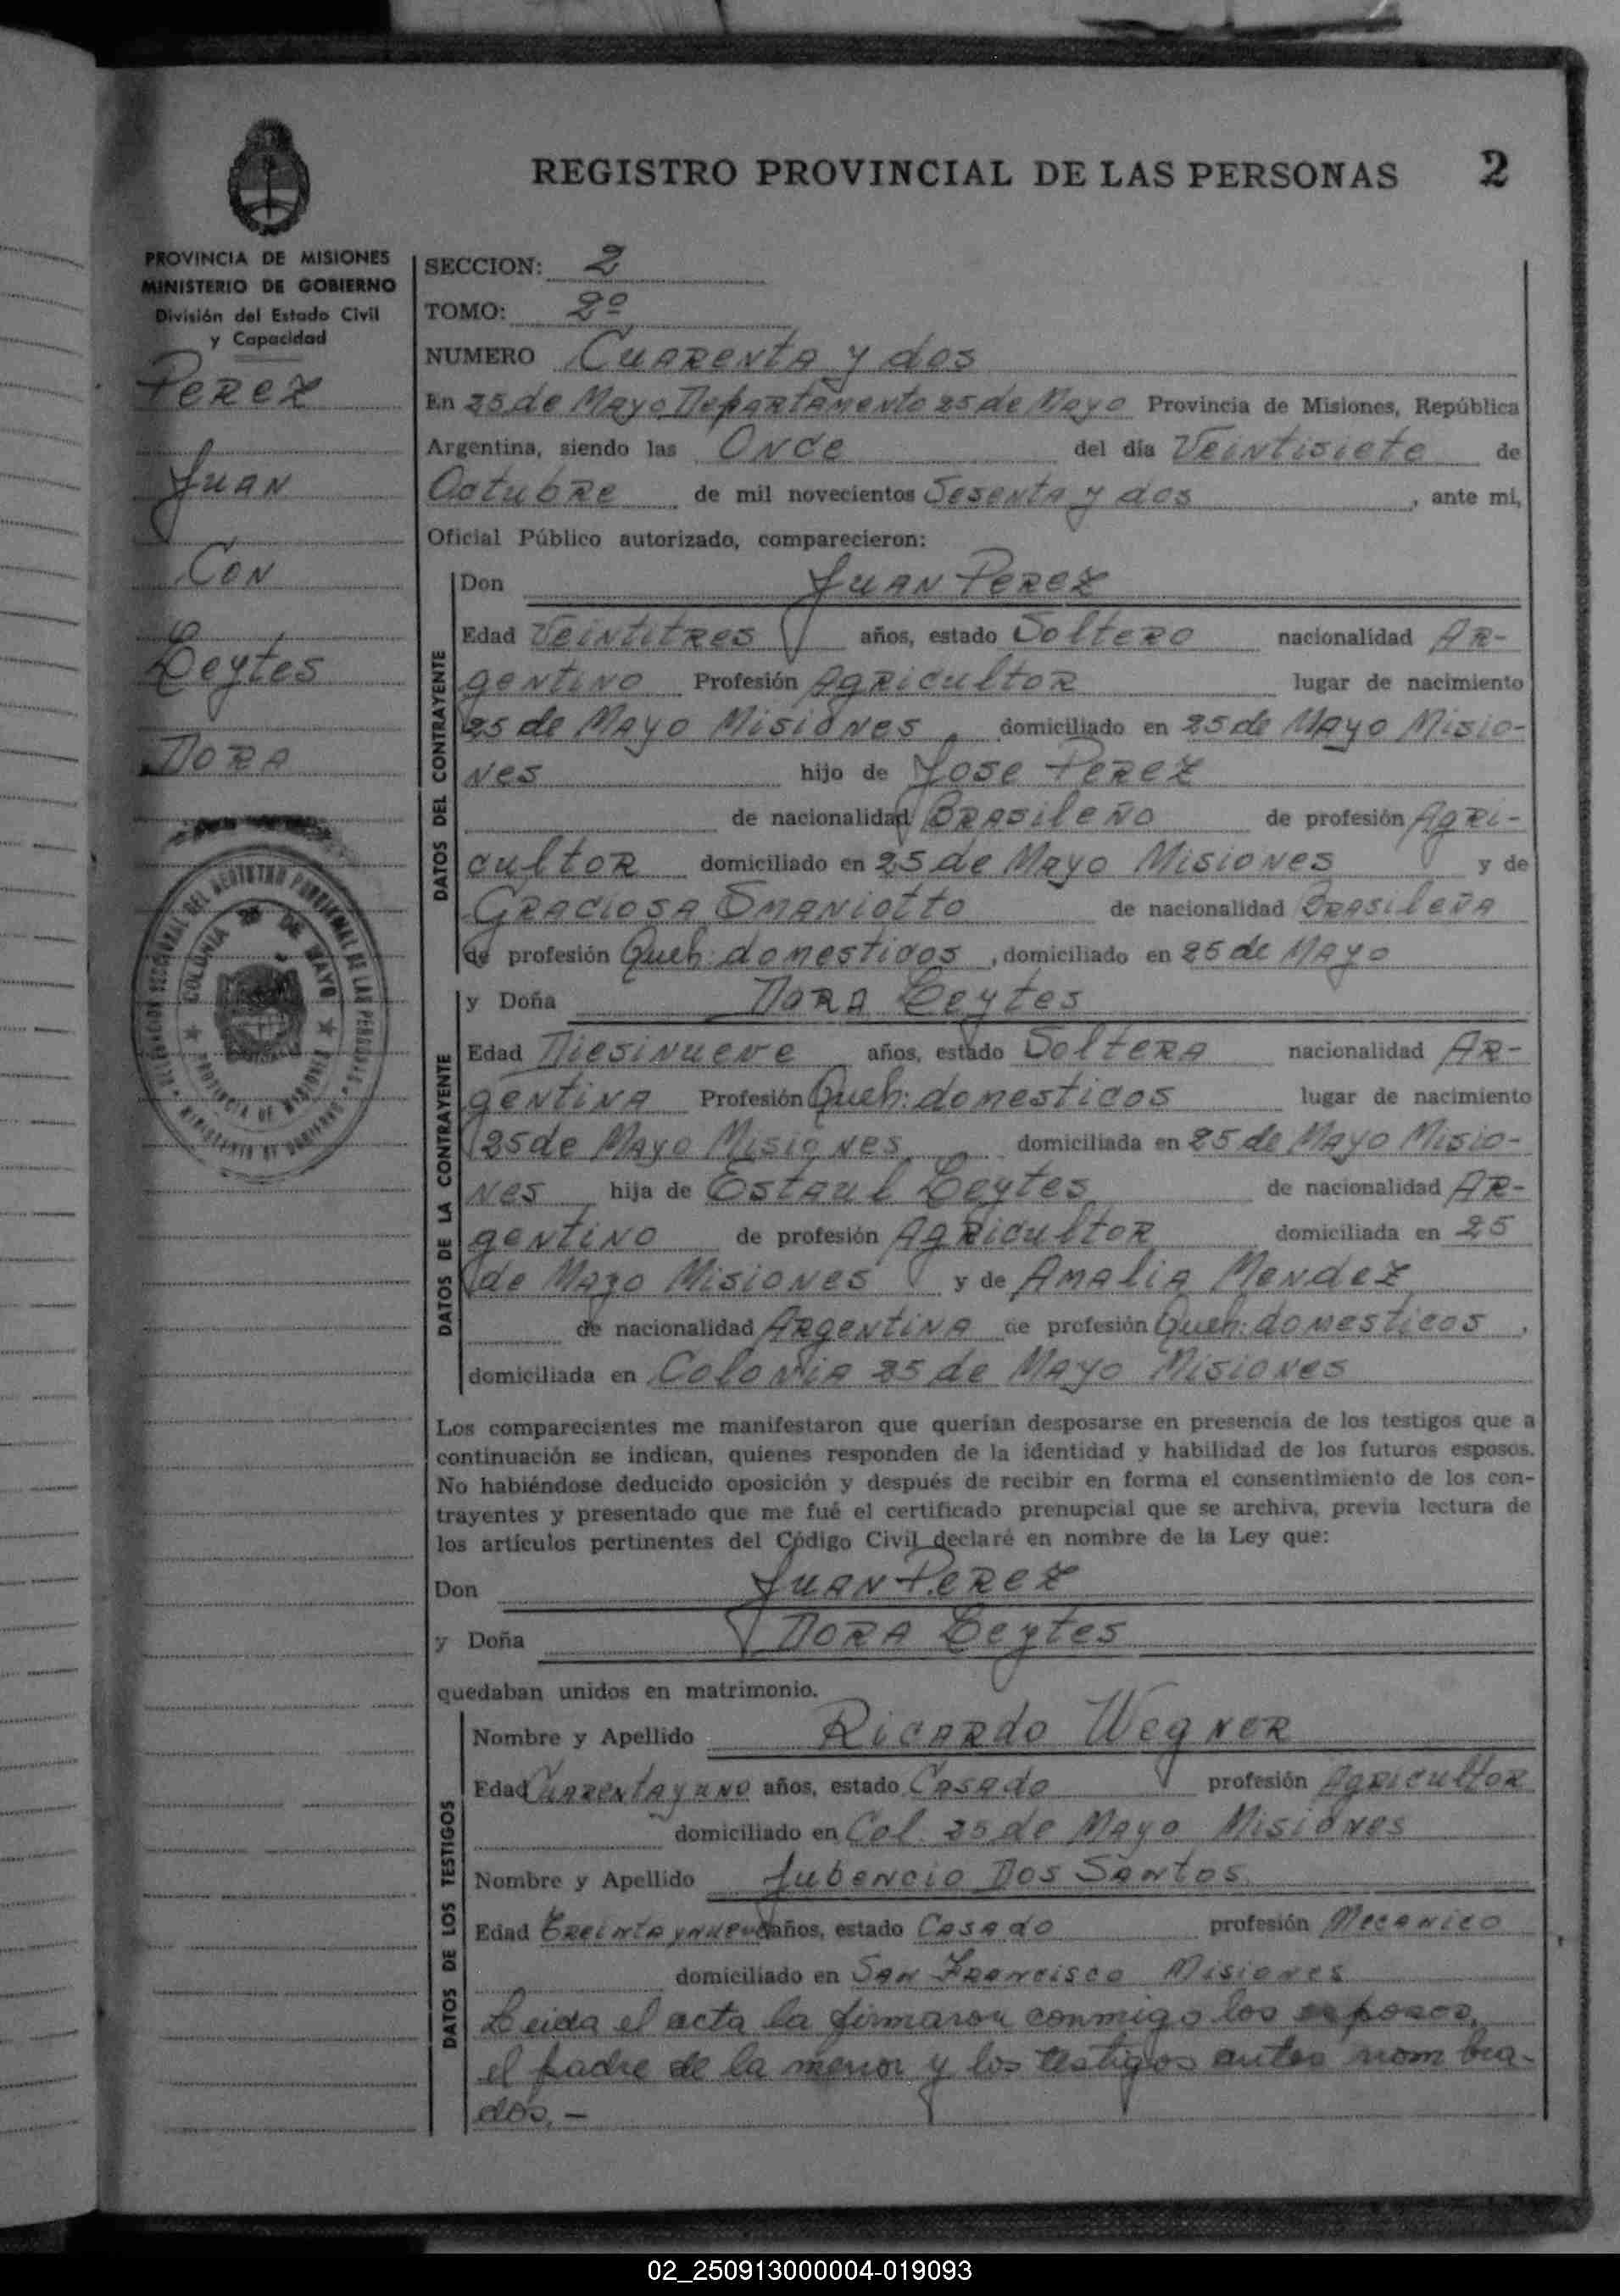 REGISTRO PROVINCIAL DE LAS PERSONAS 2
PROVINCIA DE MISIONES
MINISTERIO DE GOBIERNO
División del Estado Civil
y Capacidad
Perez
Juan
Con
Leytes
Dora
COLONIA 25 DE MAYO
PROVINCIA DE MISIONES
MINISTERIO DE GOBIERNO
SECCION: 2
TOMO: 2º
NUMERO Cuarenta y dos
En 25 de Mayo Departamento 25 de Mayo Provincia de Misiones, República
Argentina, siendo las Once del día Veintisiete de
Octubre de mil novecientos Sesenta y dos, ante mi,
Oficial Público autorizado, comparecieron:
DATOS DEL CONTRAYENTE
Don Juan Perez
Edad Veintitres años, estado Soltero nacionalidad Ar-
gentino Profesión Agricultor lugar de nacimiento
25 de Mayo Misiones domiciliado en 25 de Mayo Misio-
nes hijo de Jose Perez
de nacionalidad Brasileño de profesión Agri-
cultor domiciliado en 25 de Mayo Misiones y de
Graciosa Smaniotto de nacionalidad Brasileña
de profesión Queh: domesticos, domiciliado en 25 de Mayo
DATOS DE LA CONTRAYENTE
y Doña Dora Leytes
Edad Diesinueve años, estado Soltera nacionalidad Ar-
gentina Profesión Queh: domesticos lugar de nacimiento
25 de Mayo Misiones domiciliada en 25 de Mayo Misio-
nes hija de Estaul Leytes de nacionalidad Ar-
gentino de profesión Agricultor domiciliada en 25
de Mayo Misiones y de Amalia Mendez
de nacionalidad Argentina de profesión Queh: domesticos,
domiciliada en Colonia 25 de Mayo Misiones
Los comparecientes me manifestaron que querían desposarse en presencia de los testigos que a
continuación se indican, quienes responden de la identidad y habilidad de los futuros esposos.
No habiéndose deducido oposición y después de recibir en forma el consentimiento de los con-
trayentes y presentado que me fué el certificado prenupcial que se archiva, previa lectura de
los artículos pertinentes del Código Civil declaré en nombre de la Ley que:
Don Juan Perez
y Doña Dora Leytes
quedaban unidos en matrimonio.
DATOS DE LOS TESTIGOS
Nombre y Apellido Ricardo Wegner
Edad Cuarenta y uno años, estado Casado profesión Agricultor
domiciliado en Col. 25 de Mayo Misiones
Nombre y Apellido Jubencio Dos Santos
Edad Treinta y nueve años, estado Casado profesión Mecanico
domiciliado en San Francisco Misiones
Leida el acta la firmaron conmigo los esposos,
el padre de la menor y los testigos antes nombra-
dos.-
02_250913000004-019093